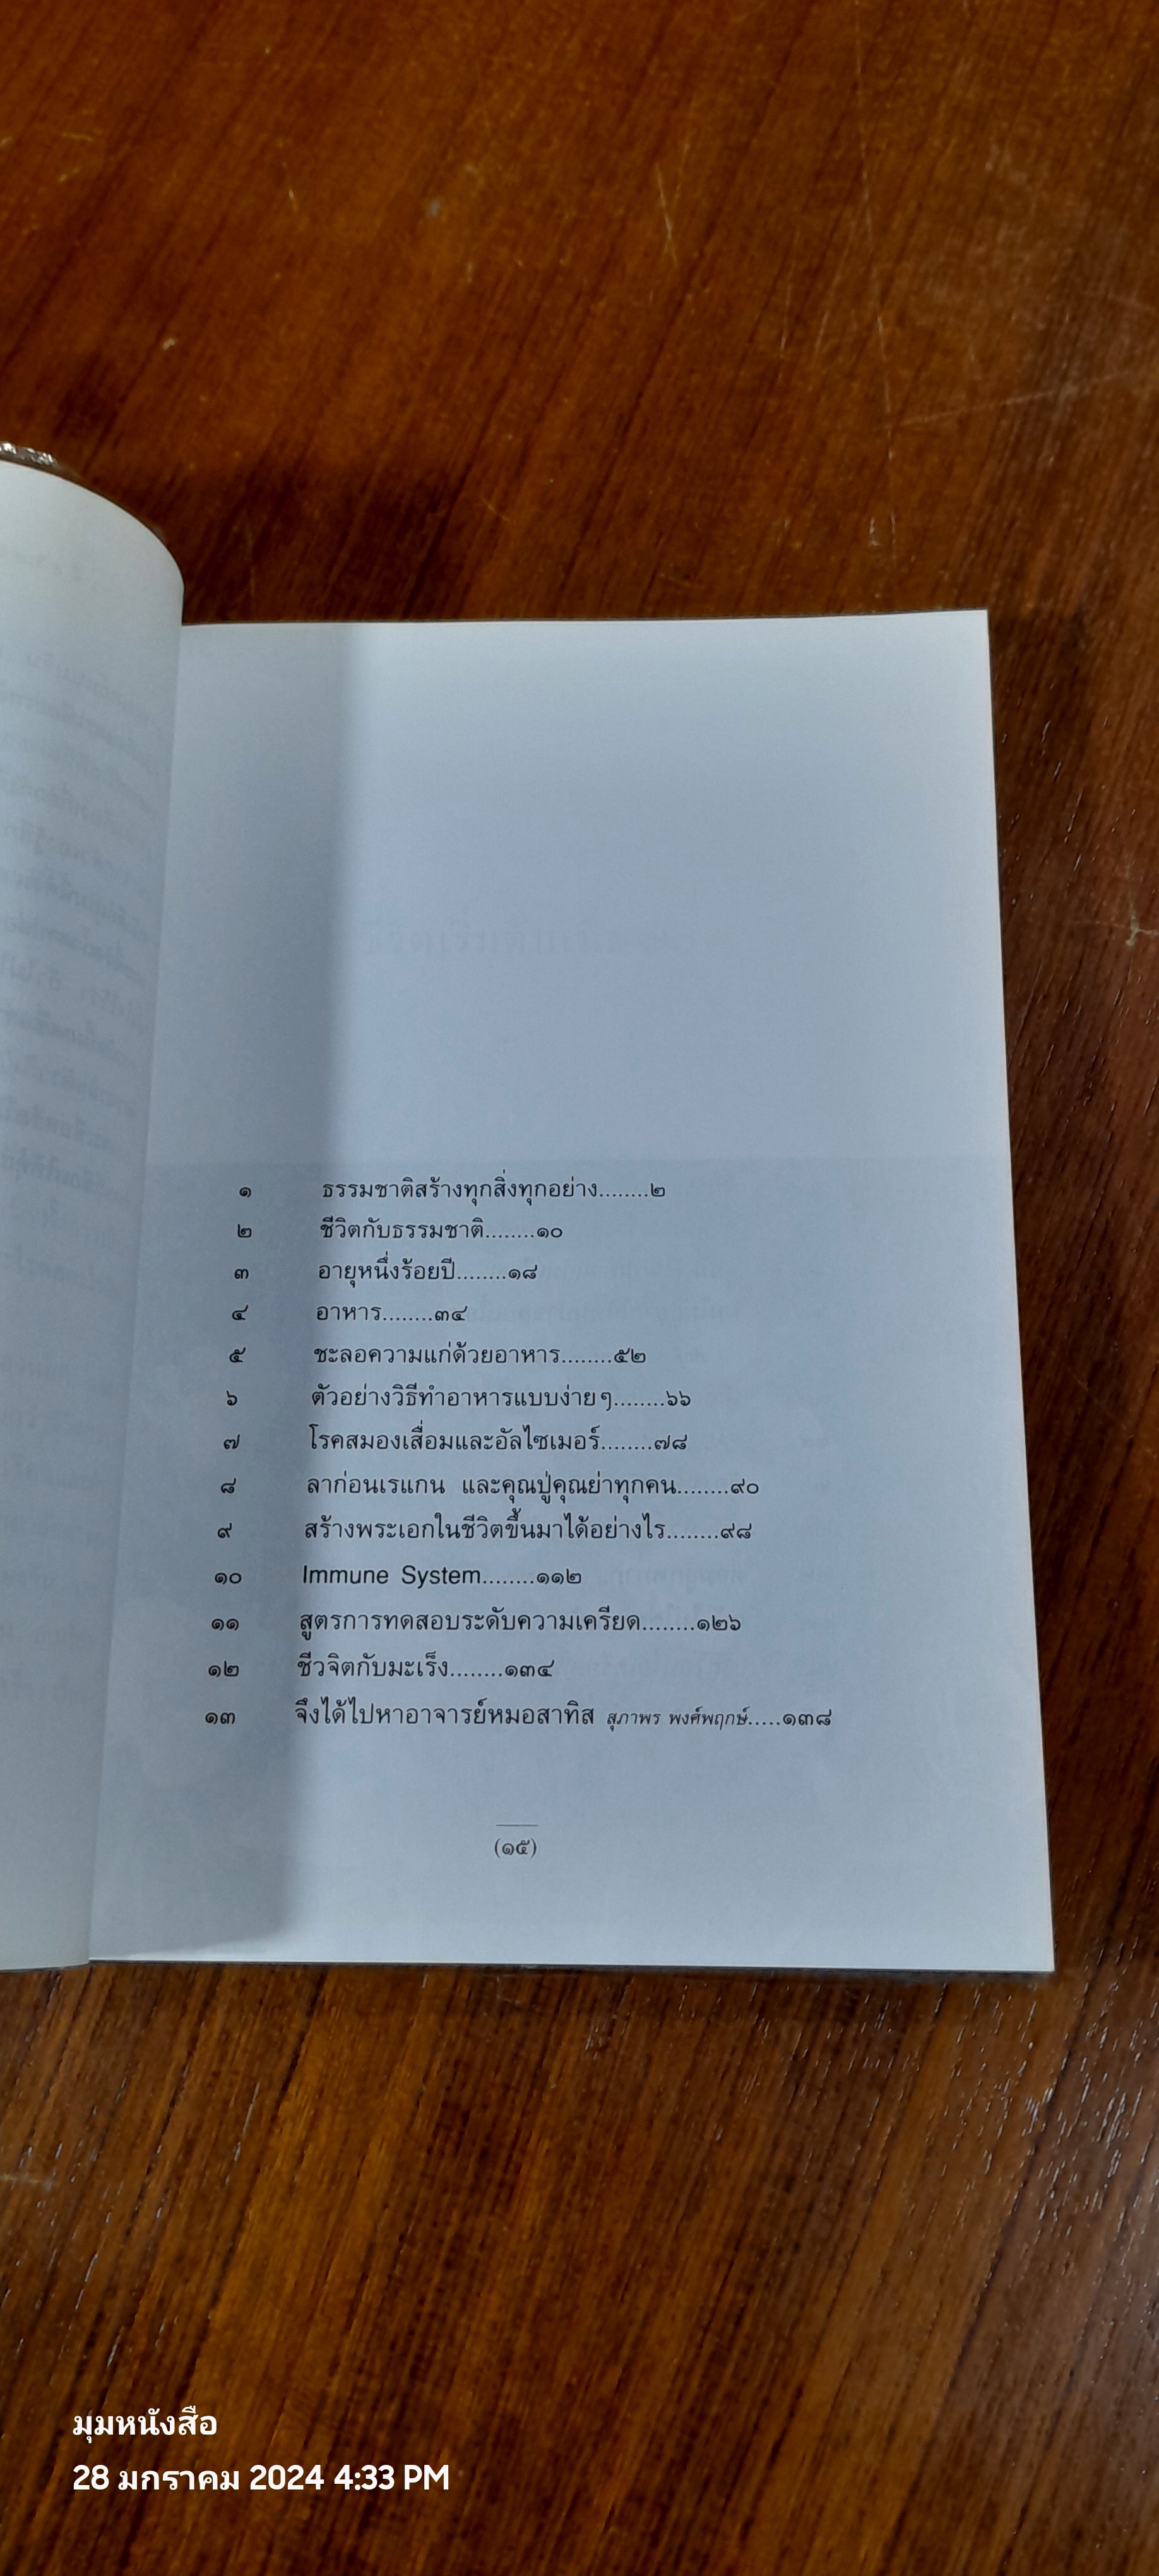 ๑ ธรรมชาติสร้างทุกสิ่งทุกอย่าง........๒
๒ ชีวิตกับธรรมชาติ........๑๐
๓ อายุหนึ่งร้อยปี........๑๘
๔ อาหาร........๓๔
๕ ชะลอความแก่ด้วยอาหาร........๕๒
๖ ตัวอย่างวิธีทำอาหารแบบง่ายๆ........๖๖
๗ โรคสมองเสื่อมและอัลไซเมอร์........๗๘
๘ ลาก่อนเรแกน และคุณปู่คุณย่าทุกคน........๙๐
๙ สร้างพระเอกในชีวิตขึ้นมาได้อย่างไร........๙๘
๑๐ Immune System........๑๑๒
๑๑ สูตรการทดสอบระดับความเครียด........๑๒๖
๑๒ ชีวจิตกับมะเร็ง........๑๓๔
๑๓ จึงได้ไปหาอาจารย์หมอสาทิส สุภาพร พงศ์พฤกษ์.....๑๓๘
(๑๕)
มุมหนังสือ
28 มกราคม 2024 4:33 PM